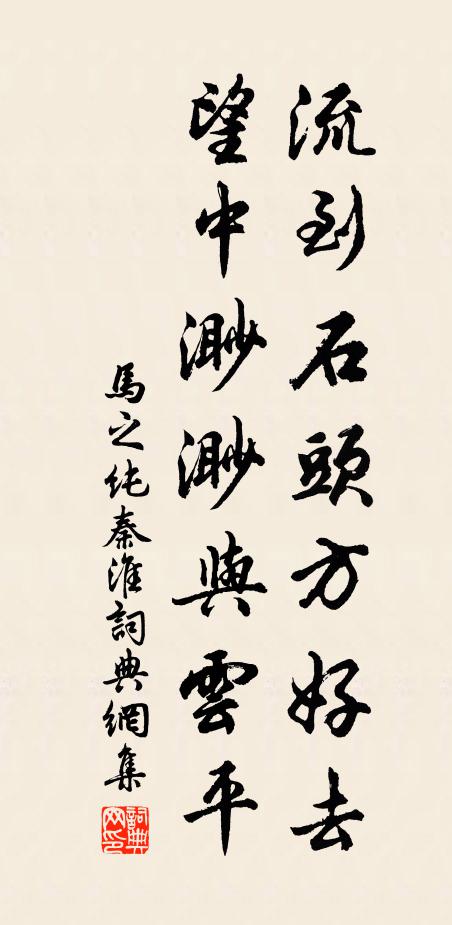 流到石頭方好去
望中渺渺與雲平
馬之純秦淮詞典網集
詞典網印